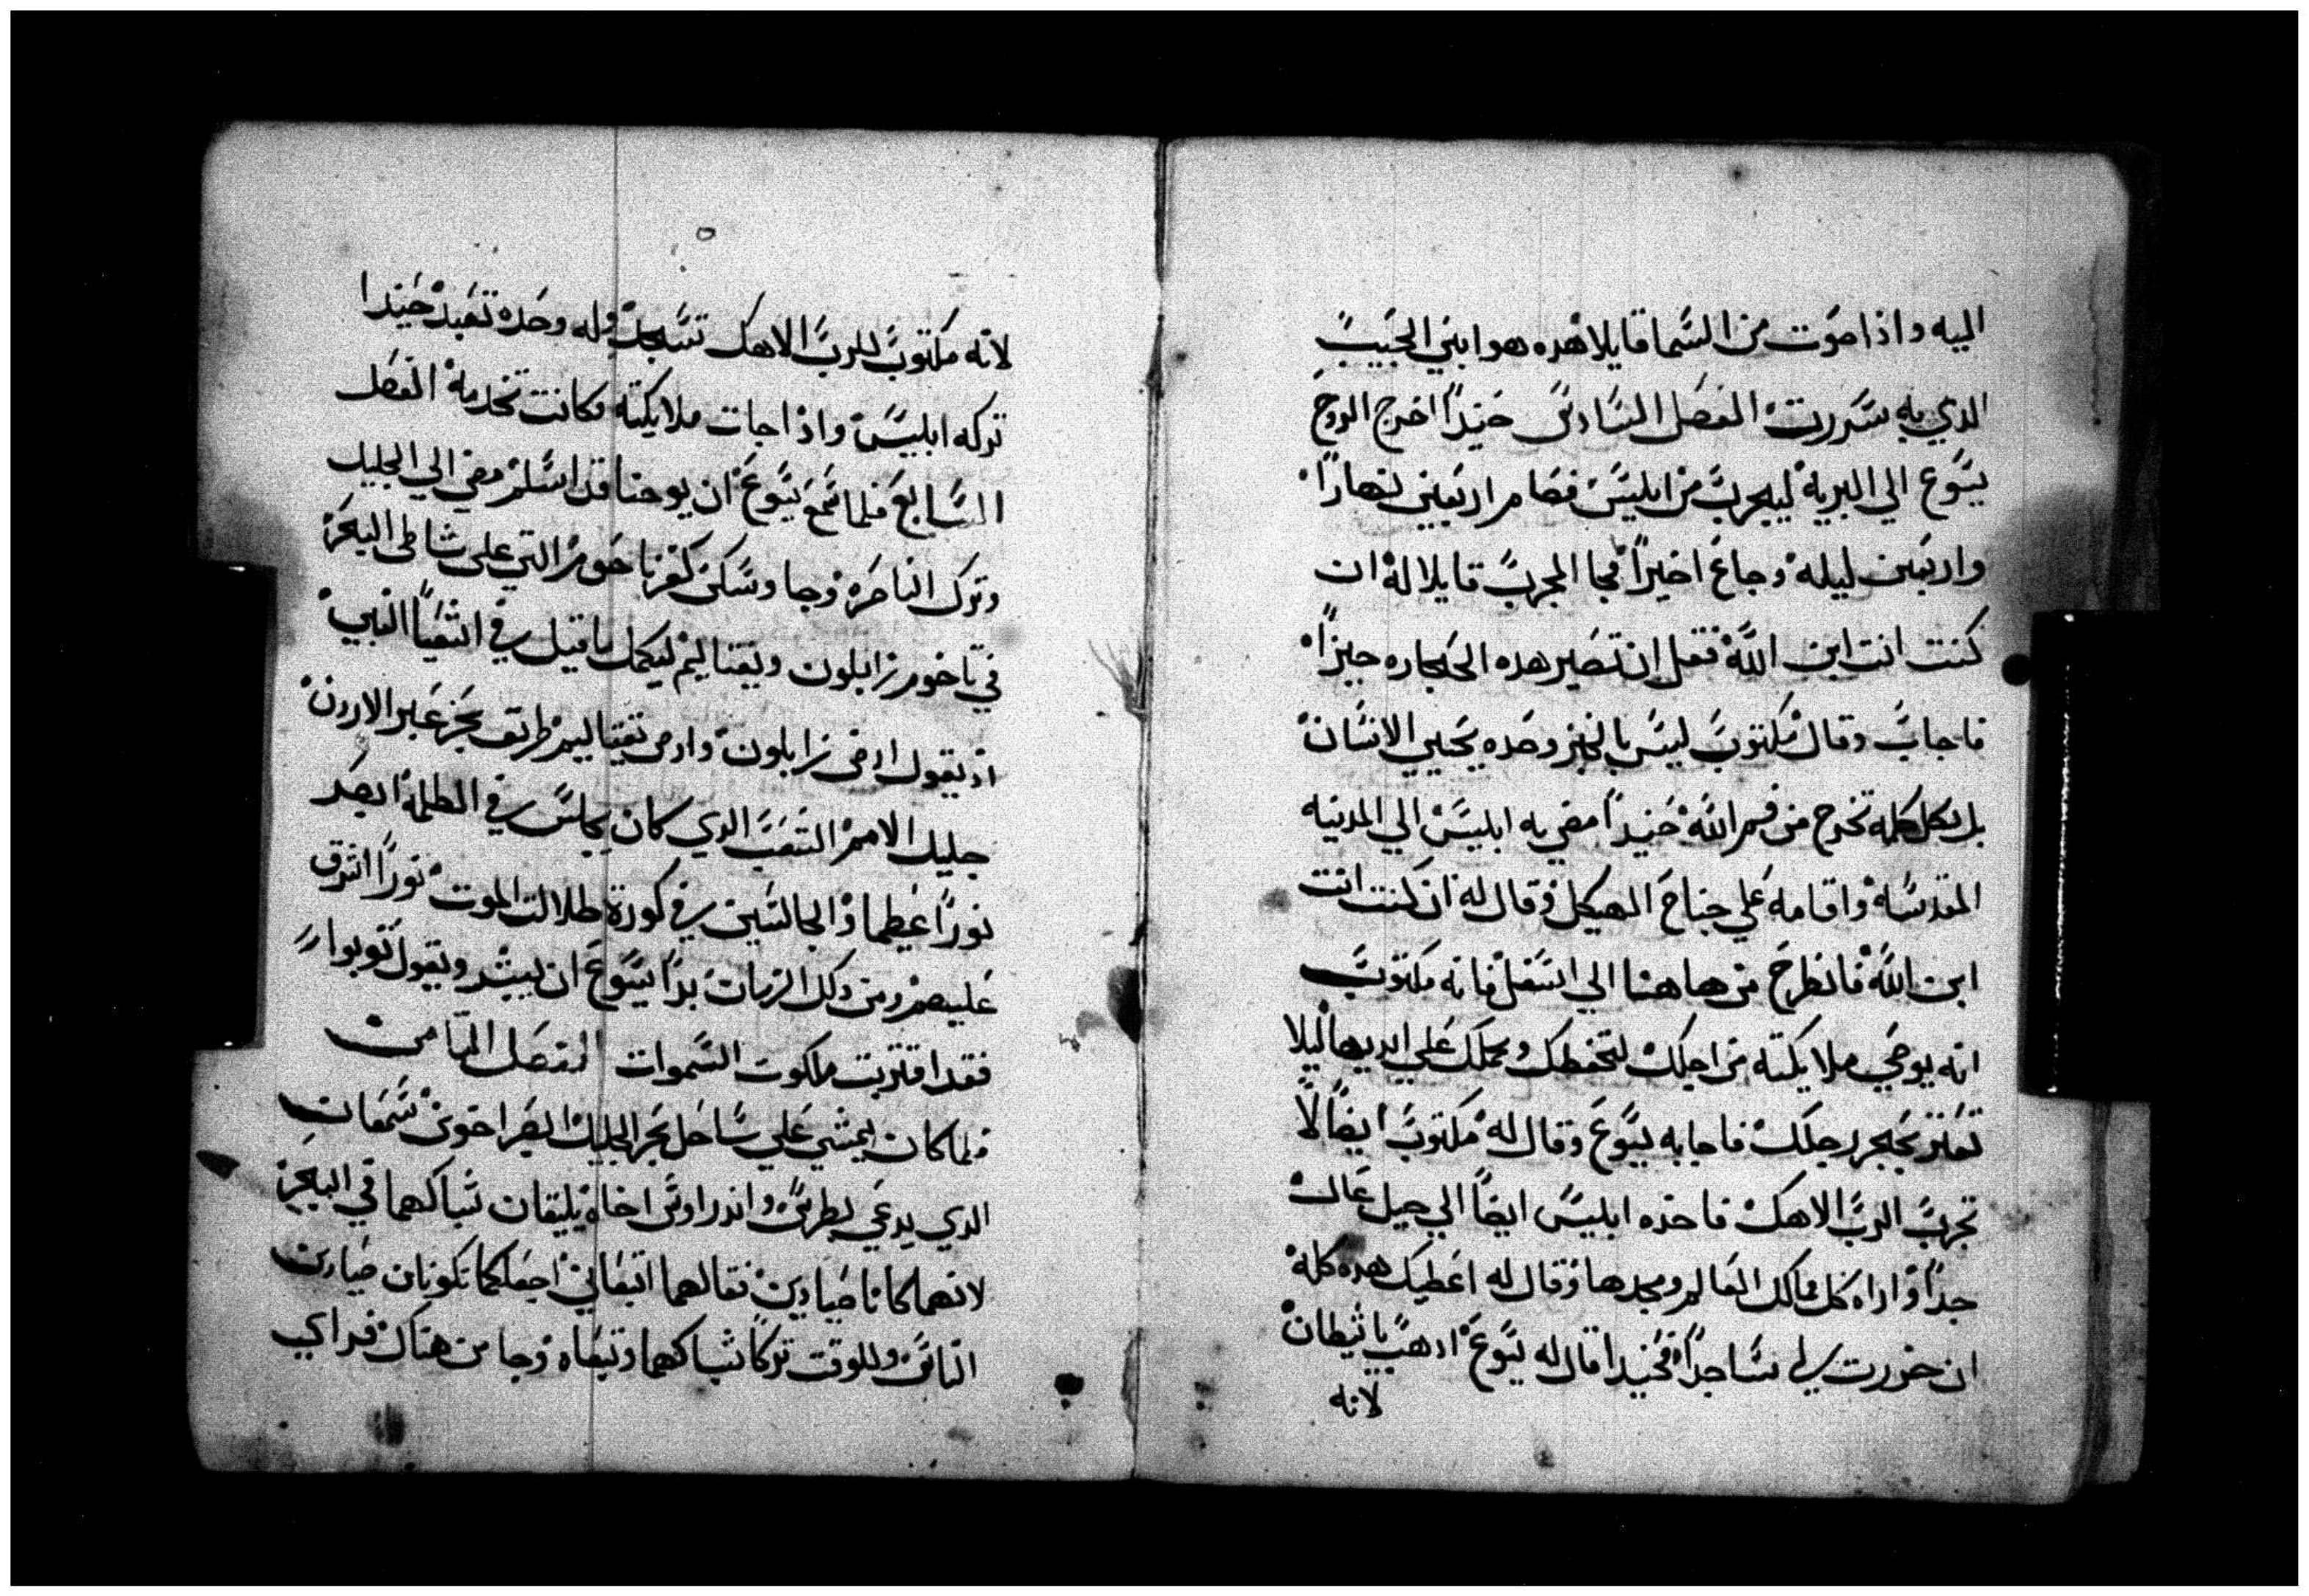 اليه واذا صوت من السما قايلا هده هو ابني الحبيب
الدي به سررت الفصل السادس حنيدا اخرج الروح
يسوع الي البريه ليجرب من ابليس فصام اربعين نهارا
واربعين ليله وجاع اخيرا فجا المجرب قايلا له ان
كنت انت ابن الله فقل ان تصير هده الحجاره خبزا
فاجاب وقال مكتوب ليس بالخبز وحده يحيي الانسان
بل بكل كلمه تخرج من فم الله حنيدا مضي به ابليس الي المدنيه
المقدسه واقامه علي جناح الهيكل وقال له ان كنت انت
ابن الله فانطرح من هاهنا الي اسفل فانه مكتوب
انه يوصي ملايكته من اجلك لتحفظك وتحملك علي ايديها ليلا
تعتر بحجر رجلك فاجابه يسوع وقال له مكتوب ايضا لا
تجرب الرب الاهك فاخده ابليس ايضا الي جبل عال
جدا واراه كل ممالك العالم ومجدها وقال له اعطيك هده كله
ان خررت لي ساجدا فحنيدا قال له يسوع ادهب يا شيطان
لانه
لانه مكتوب للرب الاهك تسجد وله وحده تعبد حنيدا
تركه ابليس واذا جات ملايكته وكانت تخدمه الفصل
السابع فلما سمع يسوع ان يوحنا قد اسلم مضي الي الجليل
وترك الناصره وجا وسكن كفرناحوم التي علي شاطي البحر
في تاخوم زابلون ونفتاليم ليكمل ما قيل في اشعيا النبي
اد يقول ارض زابلون وارض نفتاليم طريق بحر عبر الاردن
جليل الامم الشعب الدي كان يجلس في الظلمه ابصر
نورا عظيما والجالسين في كورة ظلالت الموت نورا اشرق
عليهم ومن دلك الزمان بدا يسوع ان يبشر ويقول توبوا
فقد اقتربت ملكوت السموات الفصل التامن
فلما كان يمشي علي ساحل بحر الجليل ابصر اخوين سمعان
الدي يدعي بطرس واندراوس اخاه يلقيان شباكهما في البحر
لانهما كانا صيادين فقالهما اتبعاني اجعلكما تكونان صيادين
الناس وللوقت تركا شباكهما وتبعاه وجا من هناك فراي